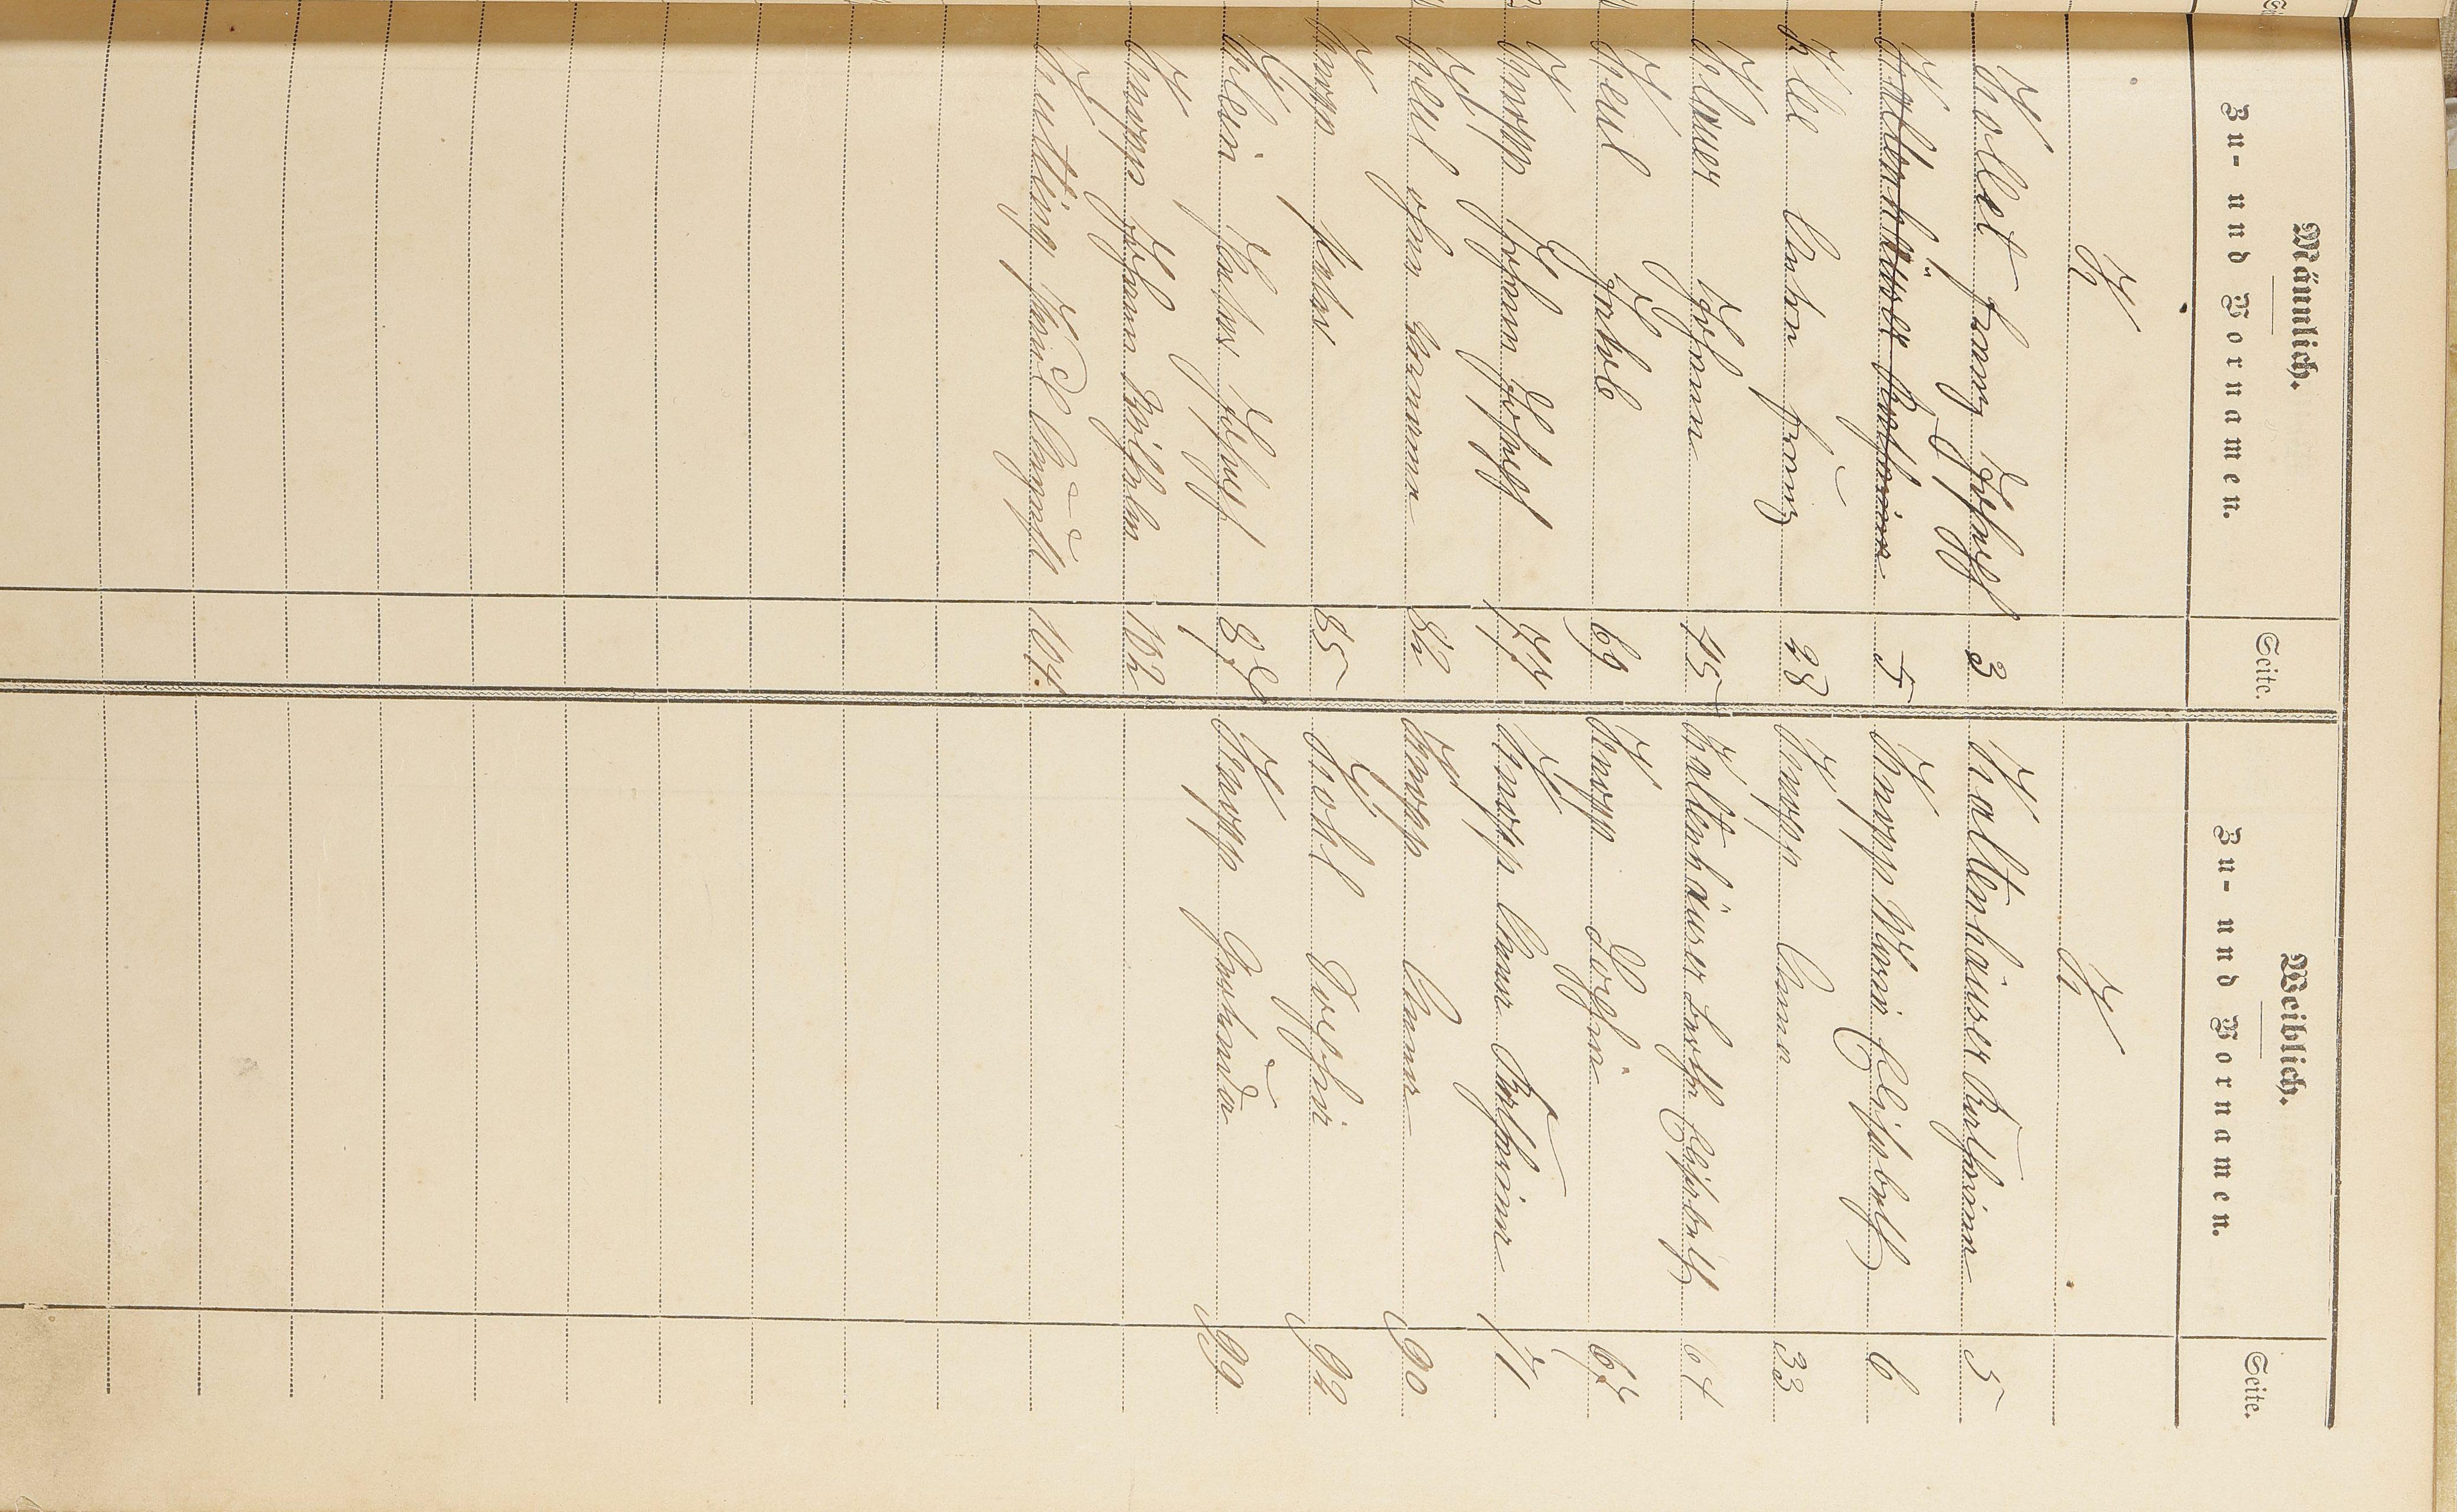 Männlich.
Zu- und Vornamen.
Seite.
K
Kollet Franz Joseph 3
Kaltenhäuser Katharina 5
Klee Anton Franz 28
Klauer Johann 45
Keul Jakob 69
Knopp Johann Joseph 77
Keul ohne Vornamen 82
Knopp Peter 85
Klein Peter Joseph 87
Knopp Johann Wilhelm 102
Knutting Karl August 104.
Weiblich.
Zu- und Vornamen.
Seite.
K
Kaltenhäuser Katharina 5
Knopp Maria Elisabeth 6
Knopp Anna 33
Kaltenhäuser Elisabeth 64
Knopp Sophia 67
Knopp Anna Katharina 71
Knopp Anna 90
Kohl Sophia 92
Knopp Gertruda 99